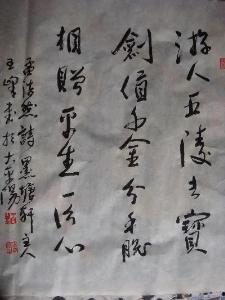 游人五陵去寶
劍值千金分手脱
相贈平生一片心
孟浩然詩黑塘轩主人
王書於太平